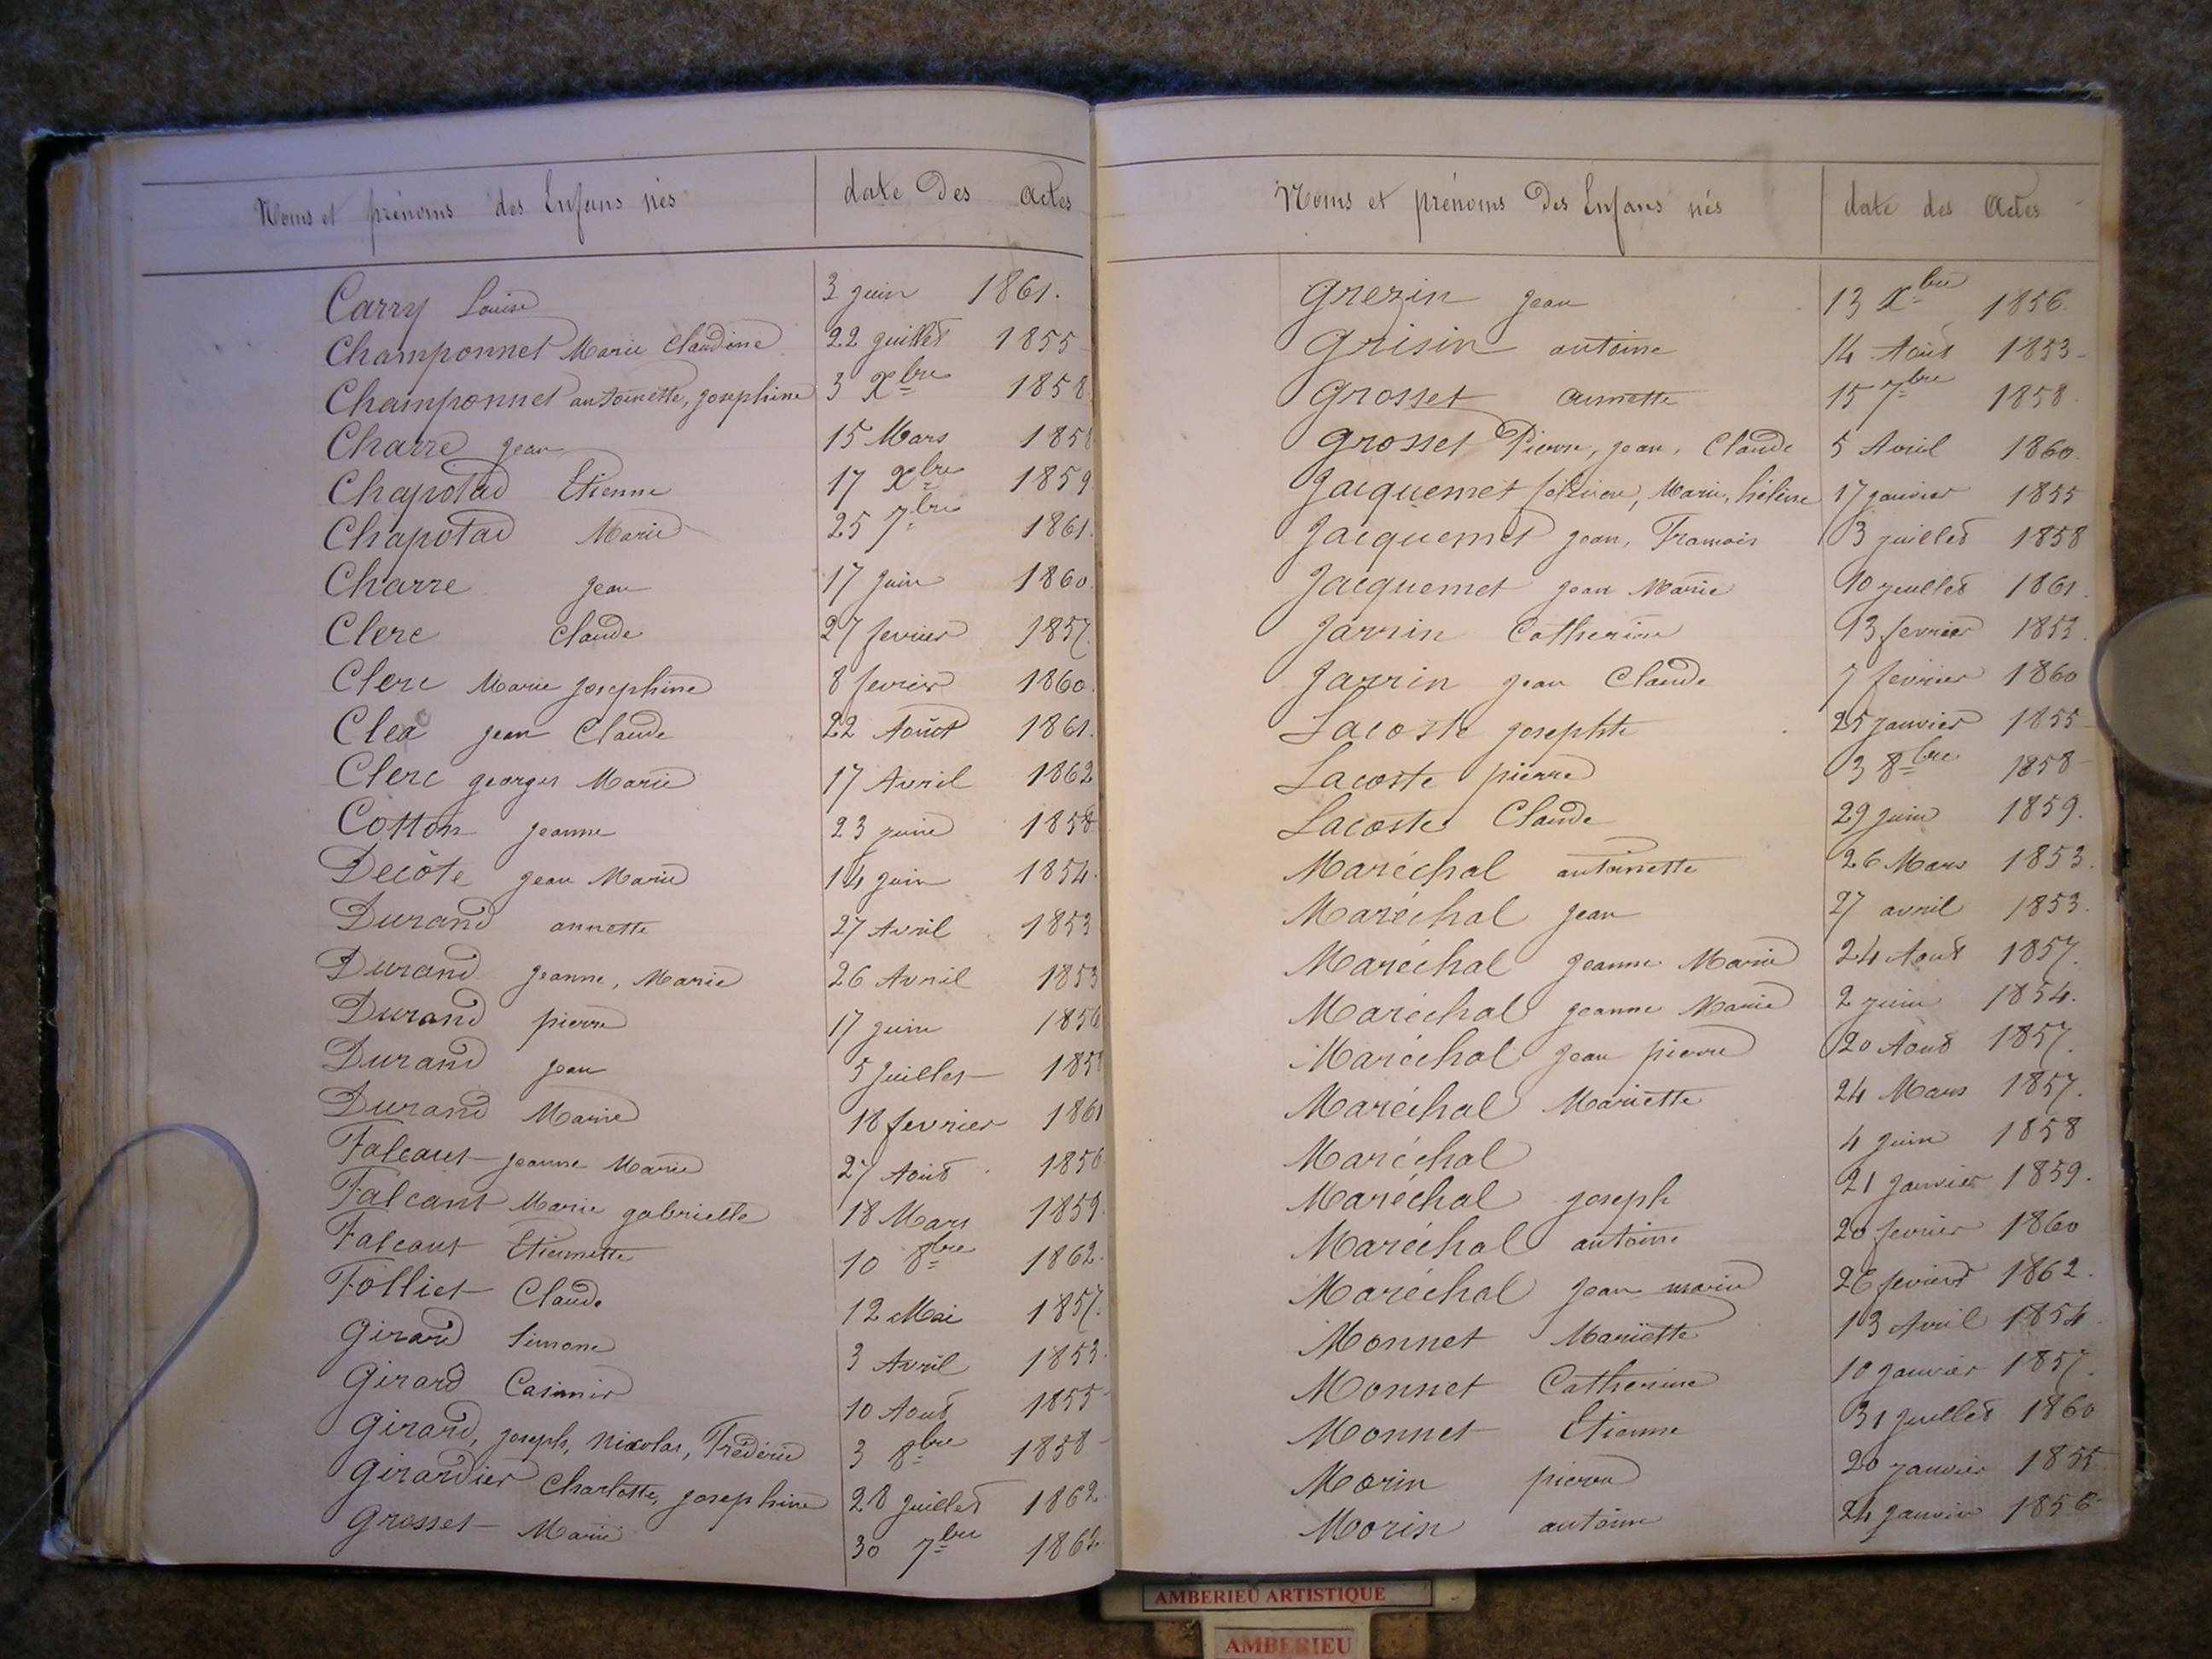 Noms et prénoms des Enfans nés date des actes
Carry Louise 3 juin 1861.
Champonnet Marie Claudine 22 juillet 1855
Champonnet antoinette, josephine 3 Xbre 1858
Charre jean 15 Mars 1858
Chapotad Etienne 17 Xbre 1859
Chapotad Marie 25 7bre 1861.
Charre jean 17 juin 1860.
Clerc Claude 27 fevrier 1857.
Clerc Marie josephine 8 fevrier 1860.
Clerc jean Claude 22 Aout 1861.
Clerc georges Marie 17 Avril 1862
Cotton jeanne 23 juin 1858
Decôte jean Marie 14 juin 1854.
Durand annette 27 Avril 1853
Durand jeanne, Marie 26 Avril 1853
Durand pierre 17 juin 1856
Durand jean 5 juillet
Durand Marie 18 fevrier 1861
Falcant jeanne Marie 27 Aout 1856
Falcant Marie gabrielle 18 Mars 1859.
Falcant Etiennette 10 8bre 1862.
Folliet Claude 12 Mai 1857.
Girard Simone 3 Avril 1853.
Girard Casimir 10 Aout 1855
Girard, joseph, Nicolas, Frédéric 3 8bre 1858
Girardier Charlotte, josephine 28 juillet 1862.
Grosset Marie 30 7bre 1862
Noms et prénoms des Enfans nés date des Actes
Grezin jean 13 Xbre 1856.
Grisin antoine 14 Aout 1853
Grosset annette 15 7bre 1858.
Grosset Pierre, jean, Claude 5 Avril 1860.
Jacquemet Marie, hélène 17 janvier 1855
Jacquemet jean, François 3 juillet 1858
Jacquemet jean Marie 10 juillet 1861.
Jarrin Catherine 13 fevrier
Jarrin jean Claude 7 fevrier 1860
Lacoste josephte 25 janvier 1855
Lacoste pierre 3 8bre 1858
Lacoste Claude 29 juin 1859.
Maréchal antoinette 26 Mars 1853.
Maréchal jean 27 avril 1853.
Maréchal jeanne Marie 24 Aout 1857.
Maréchal jeanne Marie 2 juin 1854.
Maréchal jean pierre 20 Aout 1857.
Maréchal Mariette 24 Mars 1857.
Maréchal 4 juin 1858
Maréchal joseph 21 janvier 1859.
Maréchal antoine 20 fevrier 1860
Maréchal jean marie 26 fevrier 1862.
Monnet Mariette 13 Avril 1854.
Monnet Catherine 10 janvier 1857.
Monnet Etienne 31 juillet 1860
Morin pierre 20 janvier 1855
Morin antoine 24 janvier 1856
AMBERIEU ARTISTIQUE
AMBERIEU